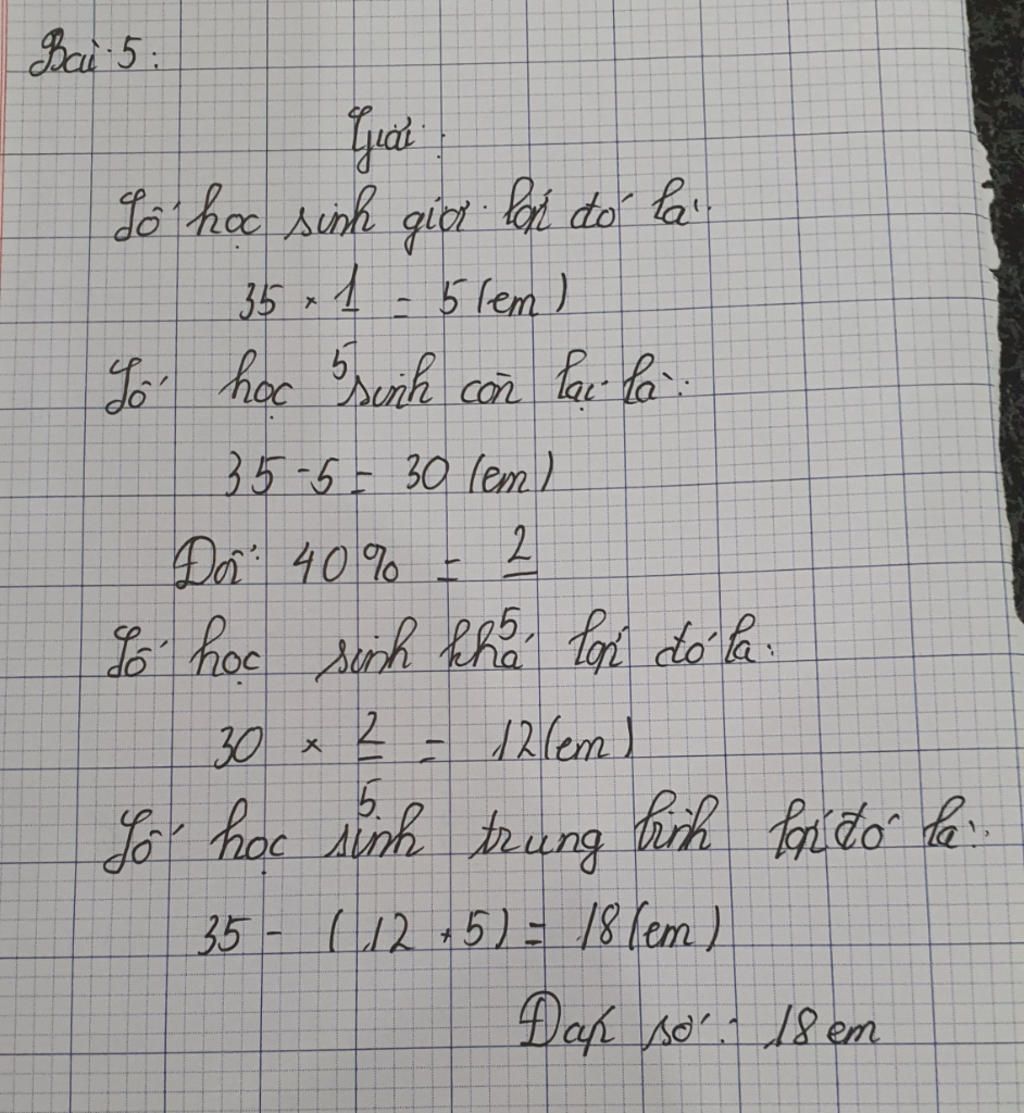 Bài 5:
Giải:
Số học sinh giỏi lớp đó là:
35 × 1/5 = 5 (em)
Số học sinh còn lại là:
35 - 5 = 30 (em)
Đổi: 40% = 2/5
Số học sinh khá lớp đó là:
30 × 2/5 = 12 (em)
Số học sinh trung bình lớp đó là:
35 - (12 + 5) = 18 (em)
Đáp số: 18 em